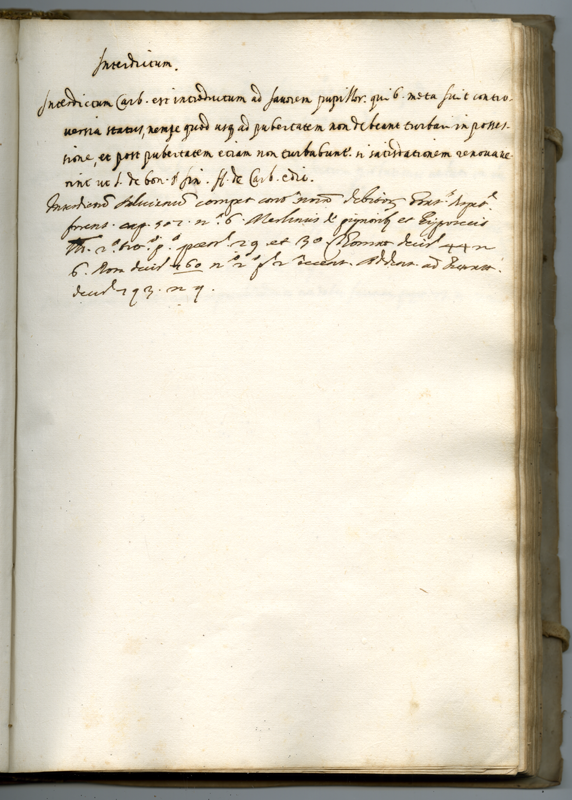 Interdictum.
Interdictum Carb. est interdictum ad favorem pupillor. quib. mota fuit contro-
versia status, nempe quod usq. ad pubertatem non debeant turbari in posses-
sione, et post pubertatem etiam non turbabunt. si satisdationem renovave-
rint ut l. de bon. § fin. ff. de Carb. edic.
Interdictū Salvianū competit cont.
forens. cap. 302. n.º 6. Merlinus de pignorib. et
2º 29 et 30 Romā decis. 44 n
6. Rom decis. 460 nº 2º p. 2 recent. ad
decis. 193. n 9.